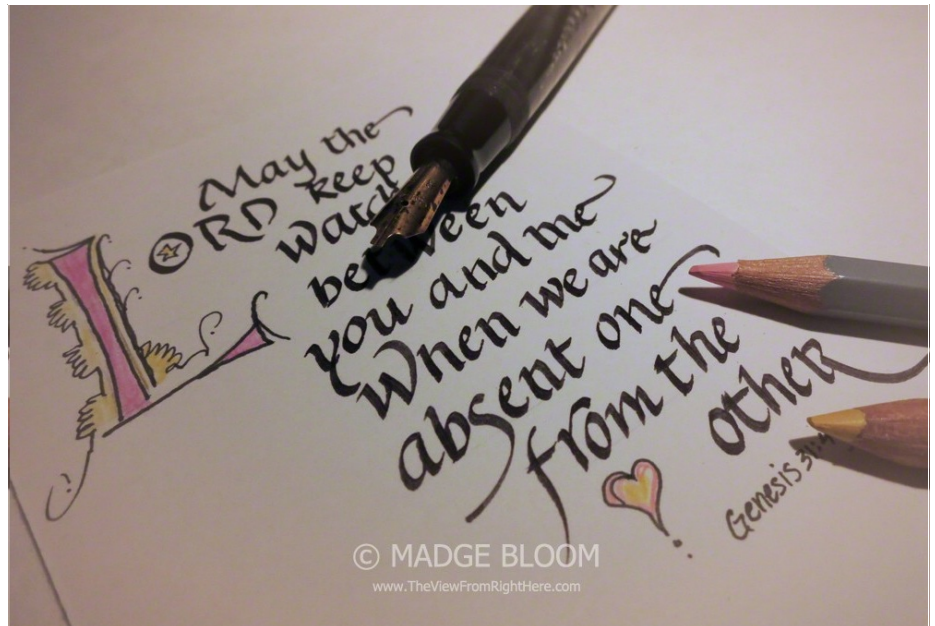 May the
LORD keep
watch
between
you and me
When we are
absent one
from the
other
Genesis 31:4
© MADGE BLOOM
www.TheViewFromRightHere.com